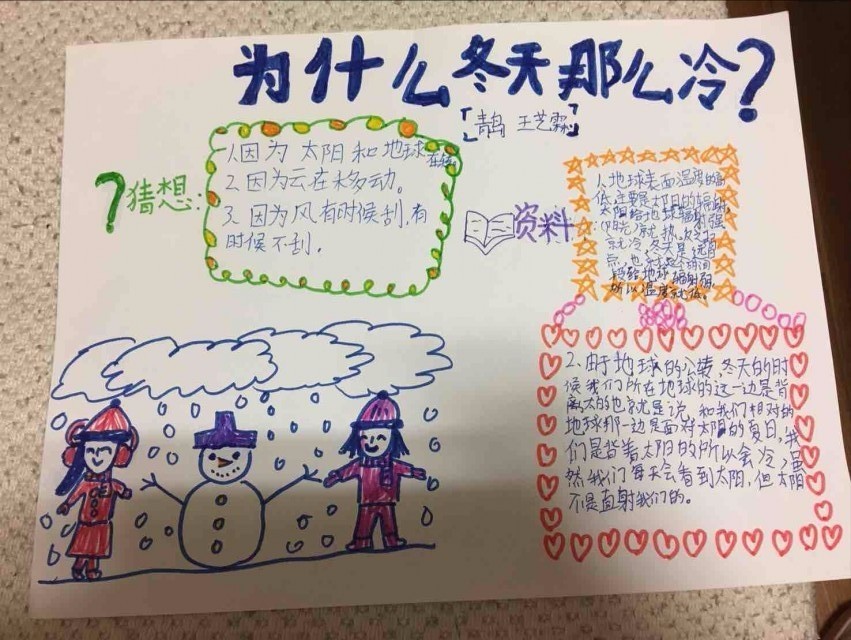 为什么冬天那么冷?
王艺霖
?猜想:
1.因为 太阳和地球
2.因为云在移动。
3.因为风有时候刮,有
时候不刮.
资料
1.地球表面温度的
低,主要是太阳的辐射,
太阳给地球辐射强
(阳光)就热,反之
就冷,冬天是
所以温度就低。
2.由于地球的公转,冬天的时
候我们所在地球的这一边是背
离太的也就是说,和我们相对的
地球那一边是面对太阳的夏日,我
们是背着太阳的所以会冷,虽
然我们每天会看到太阳,但太阳
不是直射我们的。